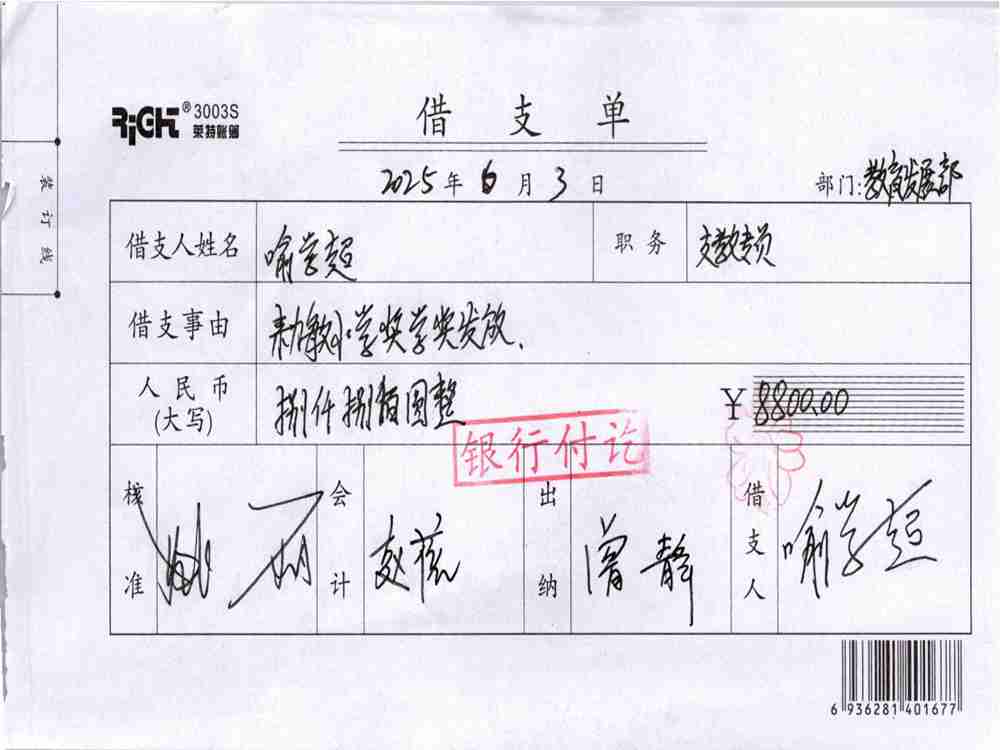 RiGHT® 3003S
莱特账簿
借支单
2025年6月3日
部门:教育发展部
装订线
借支人姓名 喻学超 职务 支教专员
借支事由 小学奖学奖发放、
人民币(大写) 捌仟捌佰圆整 ¥8800.00
银行付讫
核准 会计 赵 出纳 曾静 借支人 喻学超
6 936281 401677